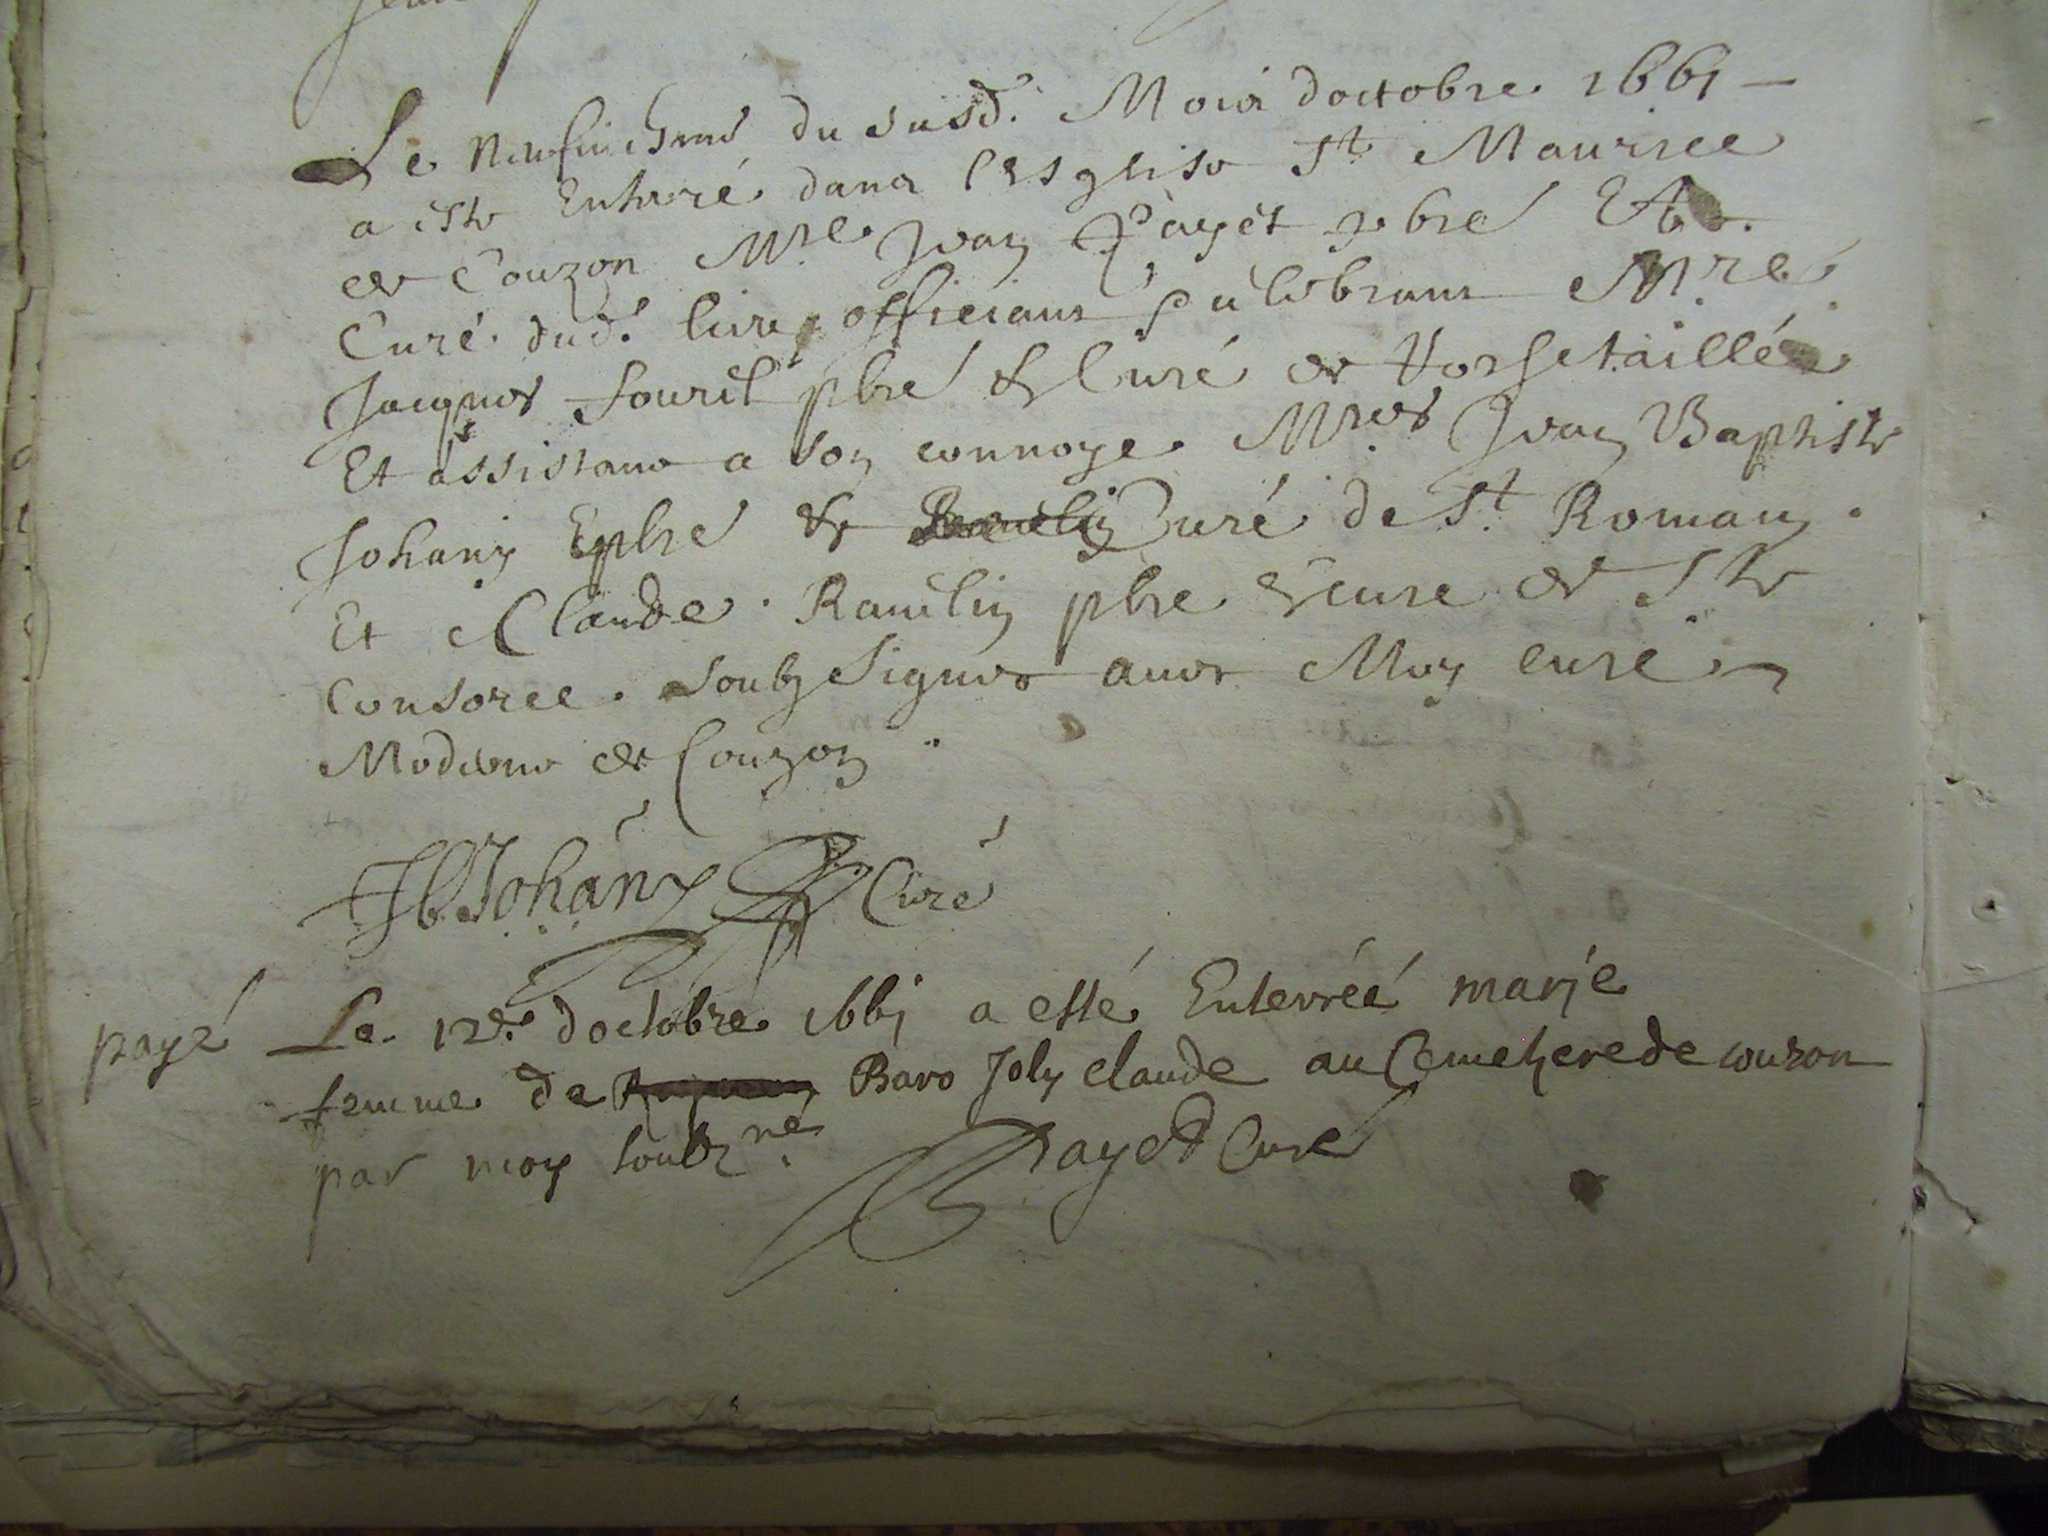 Le neufuiesme du susd. Mois doctobre 1661 —
a este Enterré dans lesglise St Maurisce
de Couzon Mre Jean Payet pbre Et
Curé dud. lieu officiant
Mre
Jacques fouril pbre & Curé de Versetaillée
Et assistans a son connoye Mres Jean Baptiste
Johany pbre & Curé de St Romain
Et Claude Rauelin pbre & cure de Ste
Consorce soubz signes auec Moy cure
Moderne de Couzon
JB Johany Curé
payé
Le 12e doctobre 1661 a esté Enterréé marie
femme de Baro Joly claude au Cemetiere de couzon
par moy soubzne Payet Curé